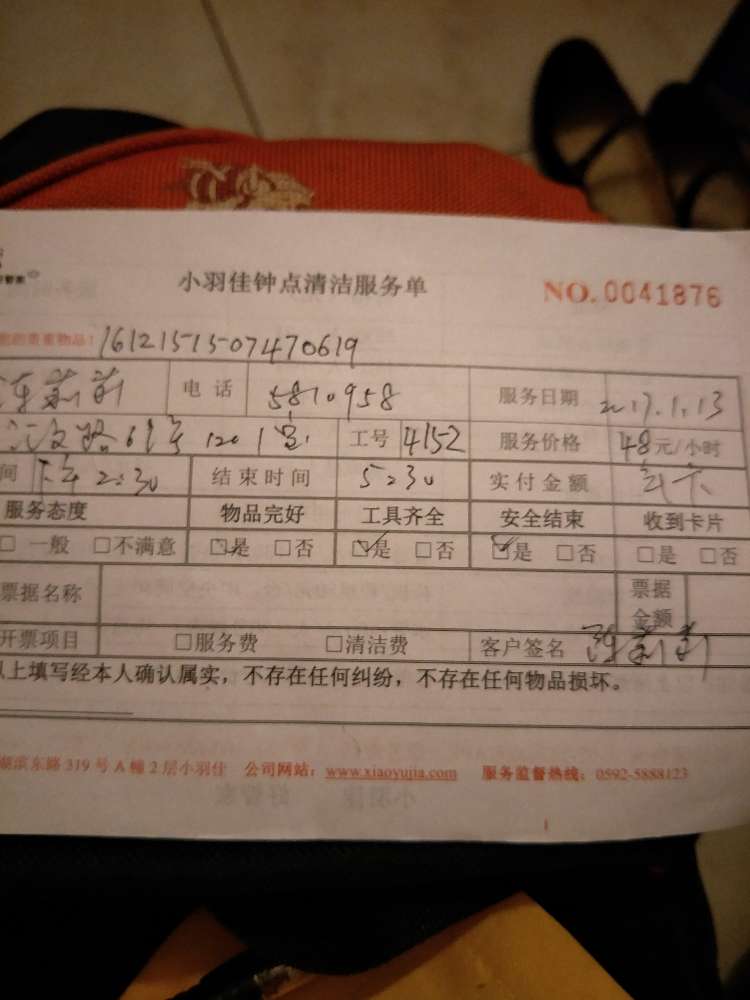 小羽佳钟点清洁服务单 NO.0041876
您的贵重物品! 1612151507470619
电话 5810958 服务日期 2017.1.13
路 69号 1201室 工号 4152 服务价格 48元/小时
间 下午2:30 结束时间 5:30 实付金额
服务态度 物品完好 工具齐全 安全结束 收到卡片
□ 一般 □不满意 ☑是 □否 ☑是 □否 ☑是 □否 □是 □否
票据名称 票据金额
开票项目 □服务费 □清洁费 客户签名
以上填写经本人确认属实，不存在任何纠纷，不存在任何物品损坏。
湖滨东路 319 号 A 幢 2 层小羽佳 公司网站：www.xiaoyujia.com 服务监督热线：0592-5888123